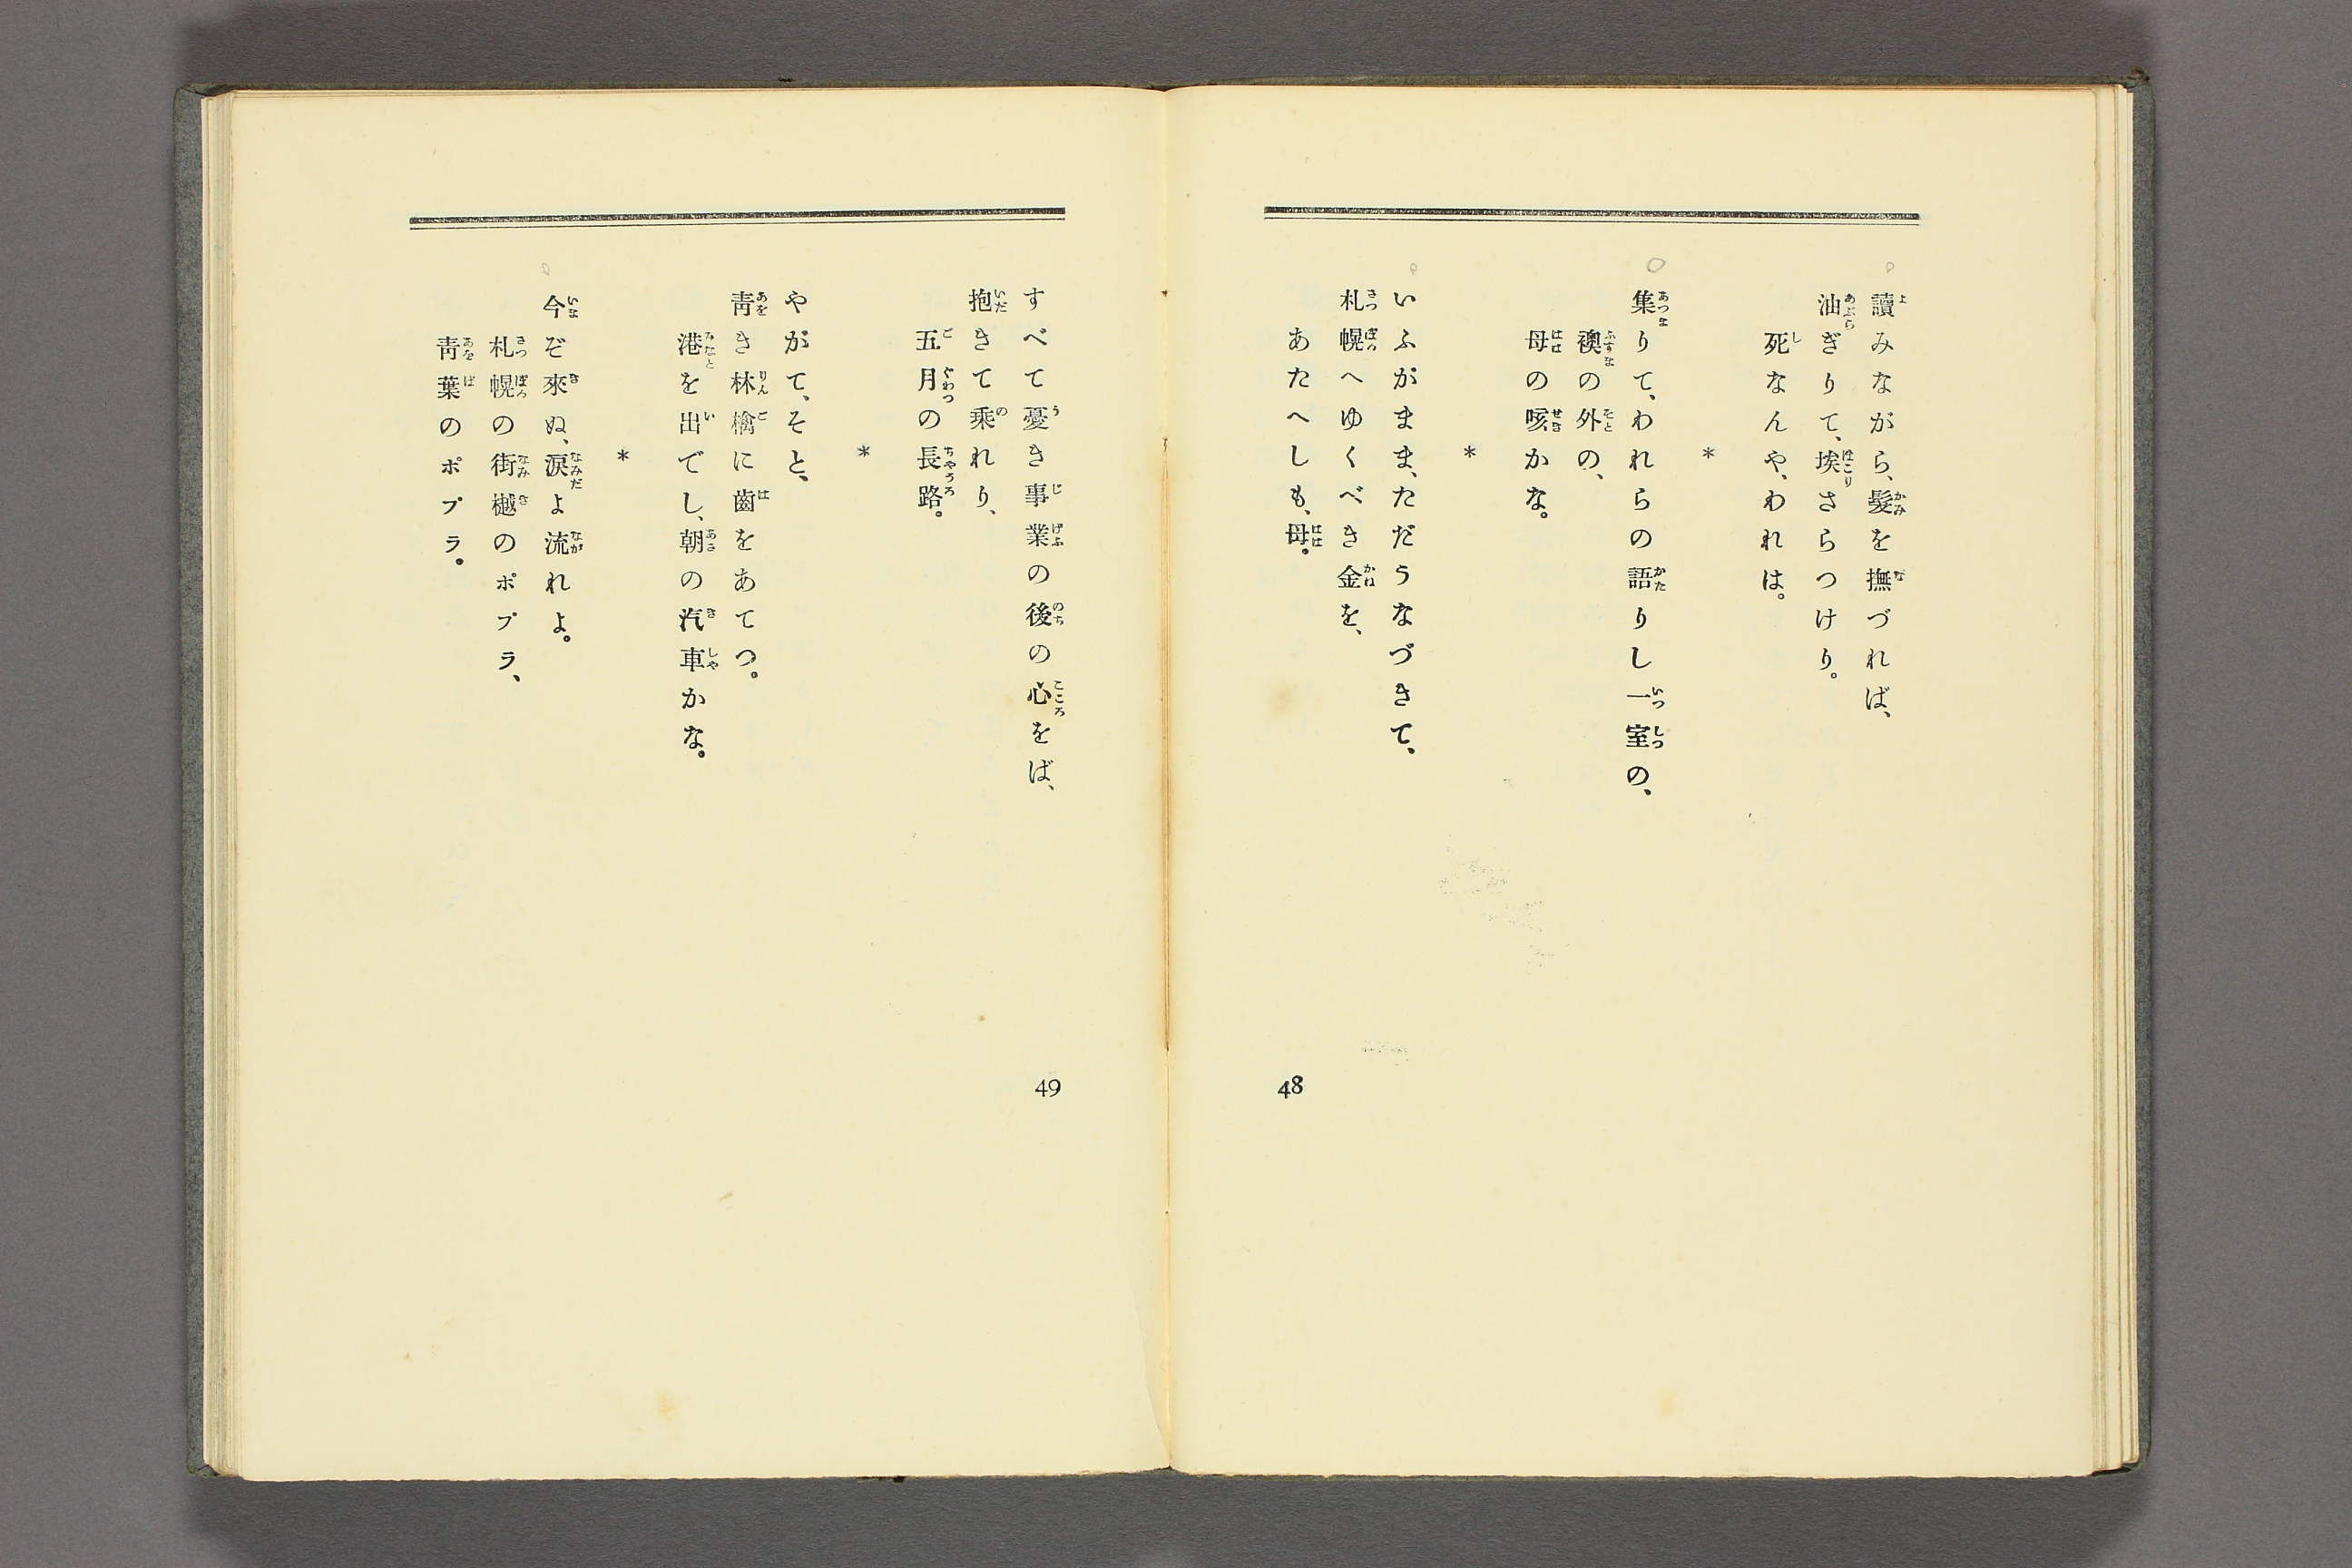 讀みながら、髮を撫づれば、
油ぎりて、埃さらつけり。
死なんや、われは。
*
集りて、われらの語りし一室の、
襖の外の、
母の咳かな。
*
いふがまま、ただうなづきて、
札幌へゆくべき金を、
あたへしも、母。
48
すべて憂き事業の後の心をば、
抱きて乘れり、
五月の長路。
*
やがて、そと、
靑き林檎に齒をあてつ。
港を出でし、朝の汽車かな。
*
今ぞ來ぬ、淚よ流れよ。
札幌の街樾のポプラ、
靑葉のポプラ。
49